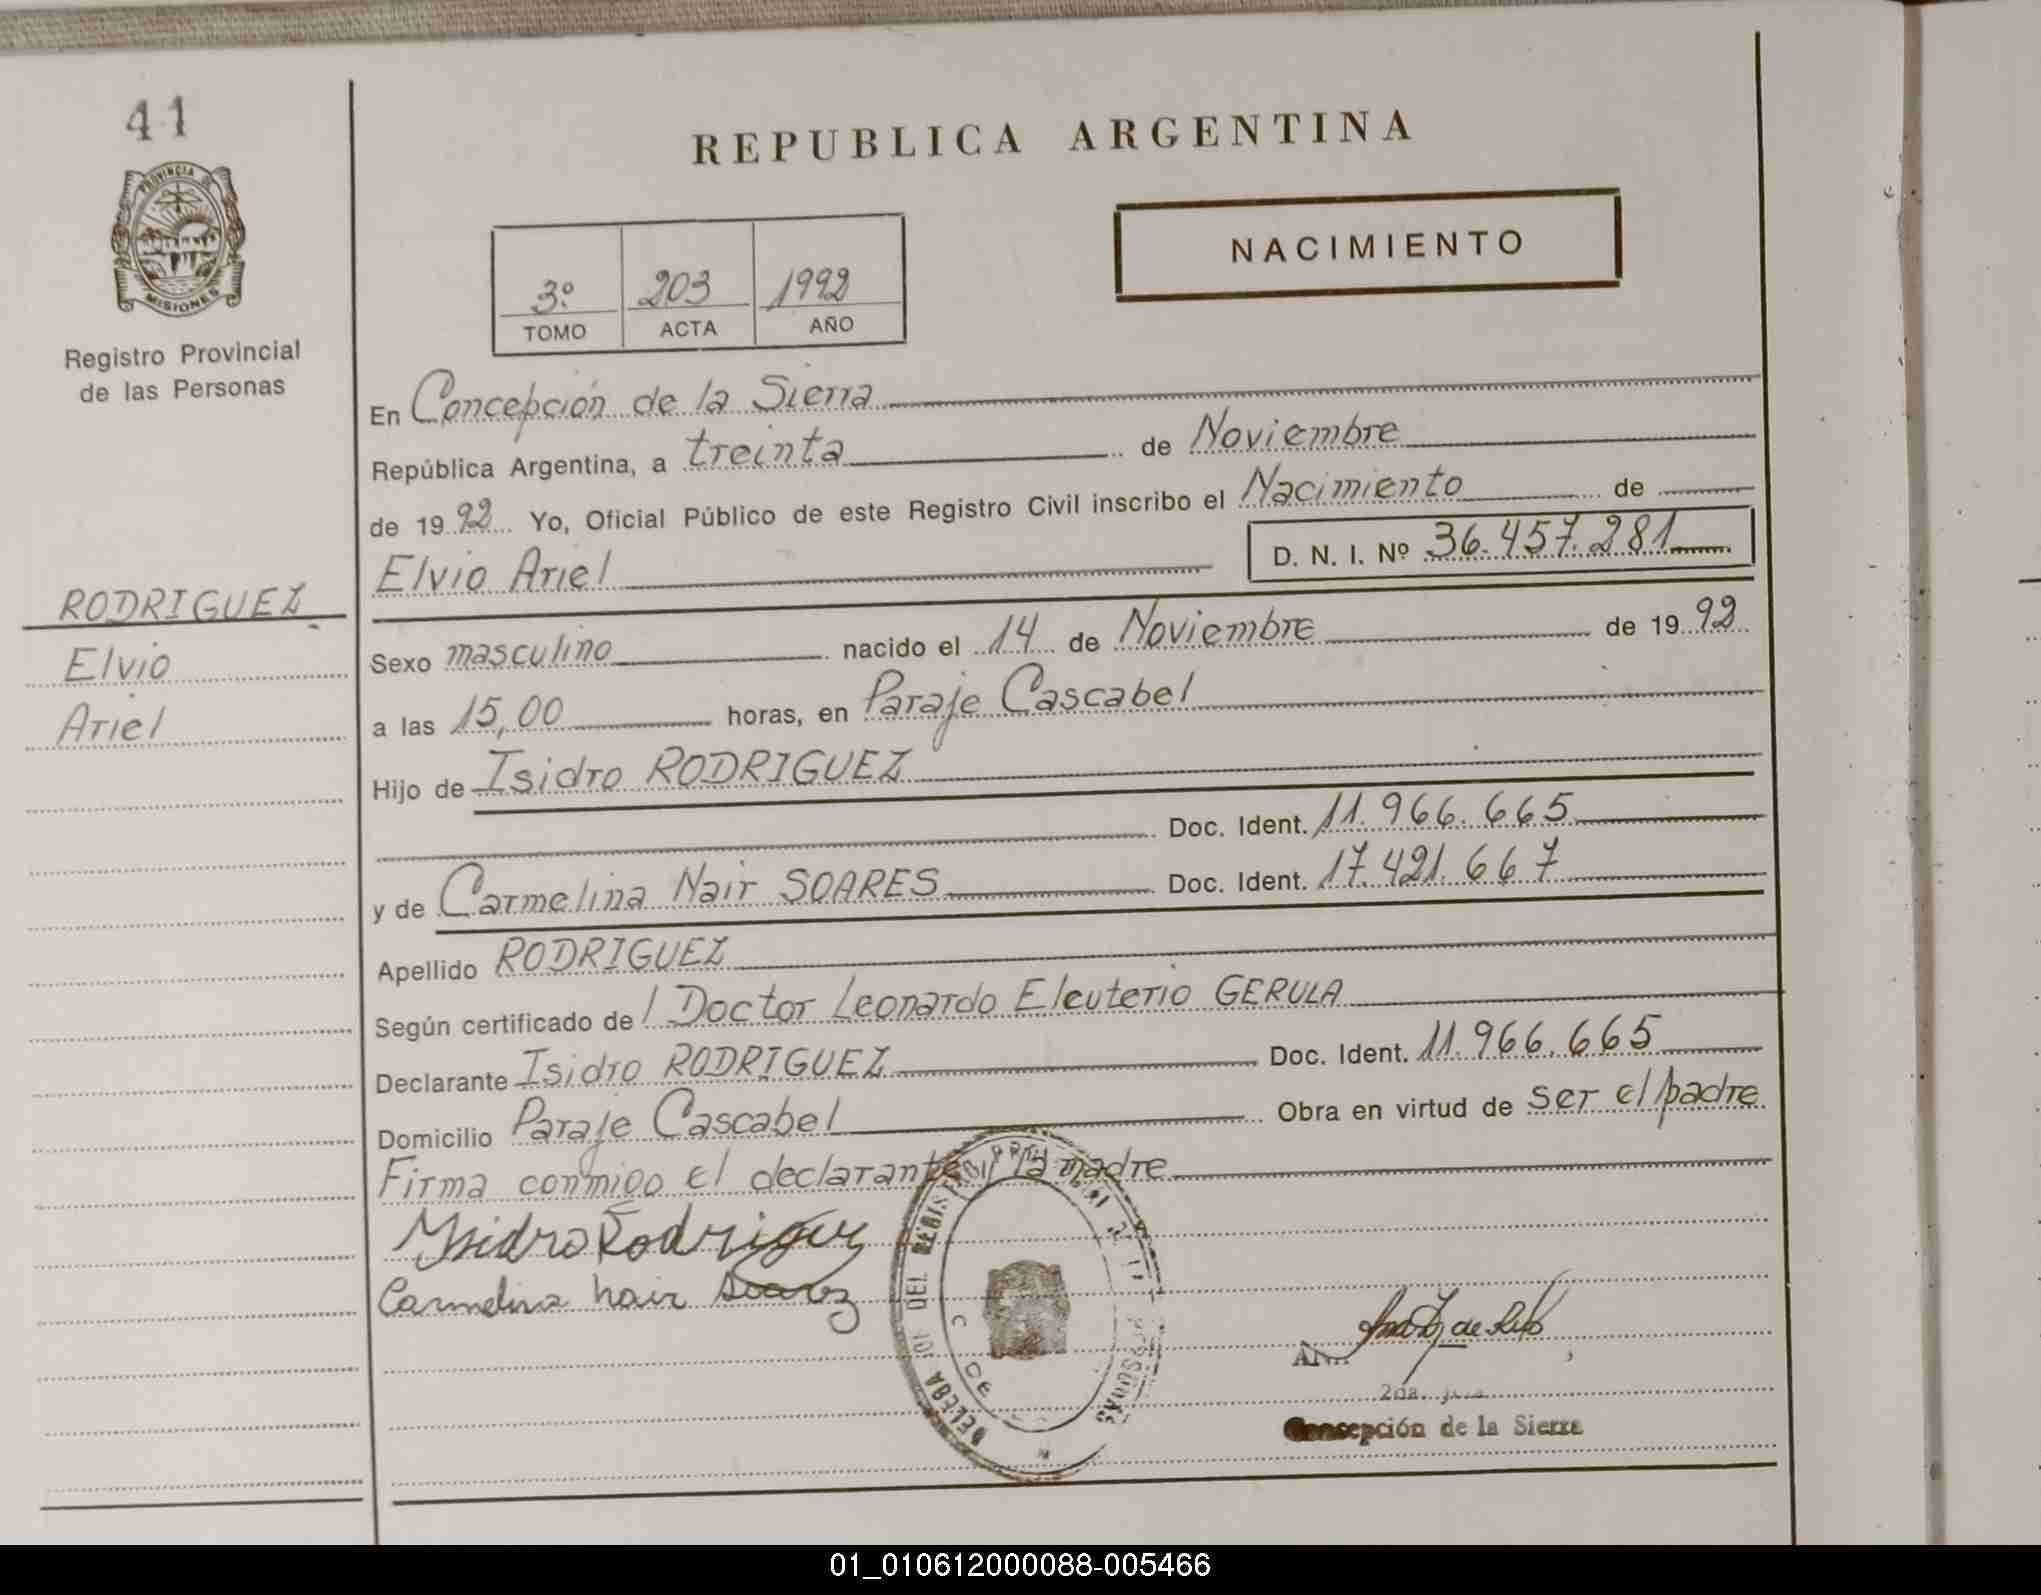 41
PROVINCIA DE
MISIONES
Registro Provincial
de las Personas
RODRIGUEZ
Elvio
Ariel
REPUBLICA ARGENTINA
NACIMIENTO
3º 203 1992
TOMO ACTA AÑO
En Concepción de la Sierra
República Argentina, a treinta de Noviembre
de 1992 Yo, Oficial Público de este Registro Civil inscribo el Nacimiento de
Elvio Ariel D. N. I. Nº 36.457.281
Sexo masculino nacido el 14 de Noviembre de 1992
a las 15,00 horas, en Paraje Cascabel
Hijo de Isidro RODRIGUEZ
Doc. Ident. 11.966.665
y de Carmelina Nair SOARES Doc. Ident. 17.421.667
Apellido RODRIGUEZ
Según certificado del Doctor Leonardo Eleuterio GERULA
Declarante Isidro RODRIGUEZ Doc. Ident. 11.966.665
Domicilio Paraje Cascabel Obra en virtud de ser el padre
Firma conmigo el declarante y la madre
Isidro Rodriguez
Carmelina nair Soarez
DEL
2da.
Concepción de la Sierra
01_010612000088-005466